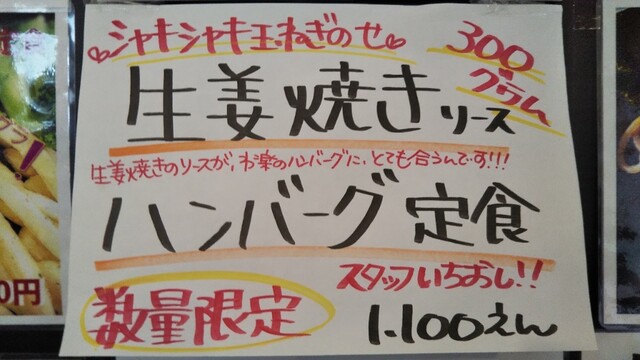 ♡シャキシャキ玉ねぎのせ♡
300グラム
生姜焼きソース
生姜焼きのソースが、わ楽のハンバーグに、とても合うんです!!!
ハンバーグ定食
スタッフいちおし!!
数量限定
1.100えん
0円